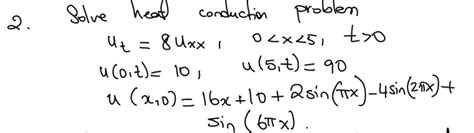 2. Solve heat conduction problem
u_t = 8u_xx , 0<x<5, t>0
u(0,t) = 10, u(5,t) = 90
u(x,0) = 16x+10+2sin(πx)-4sin(2πx)+
sin(6πx).